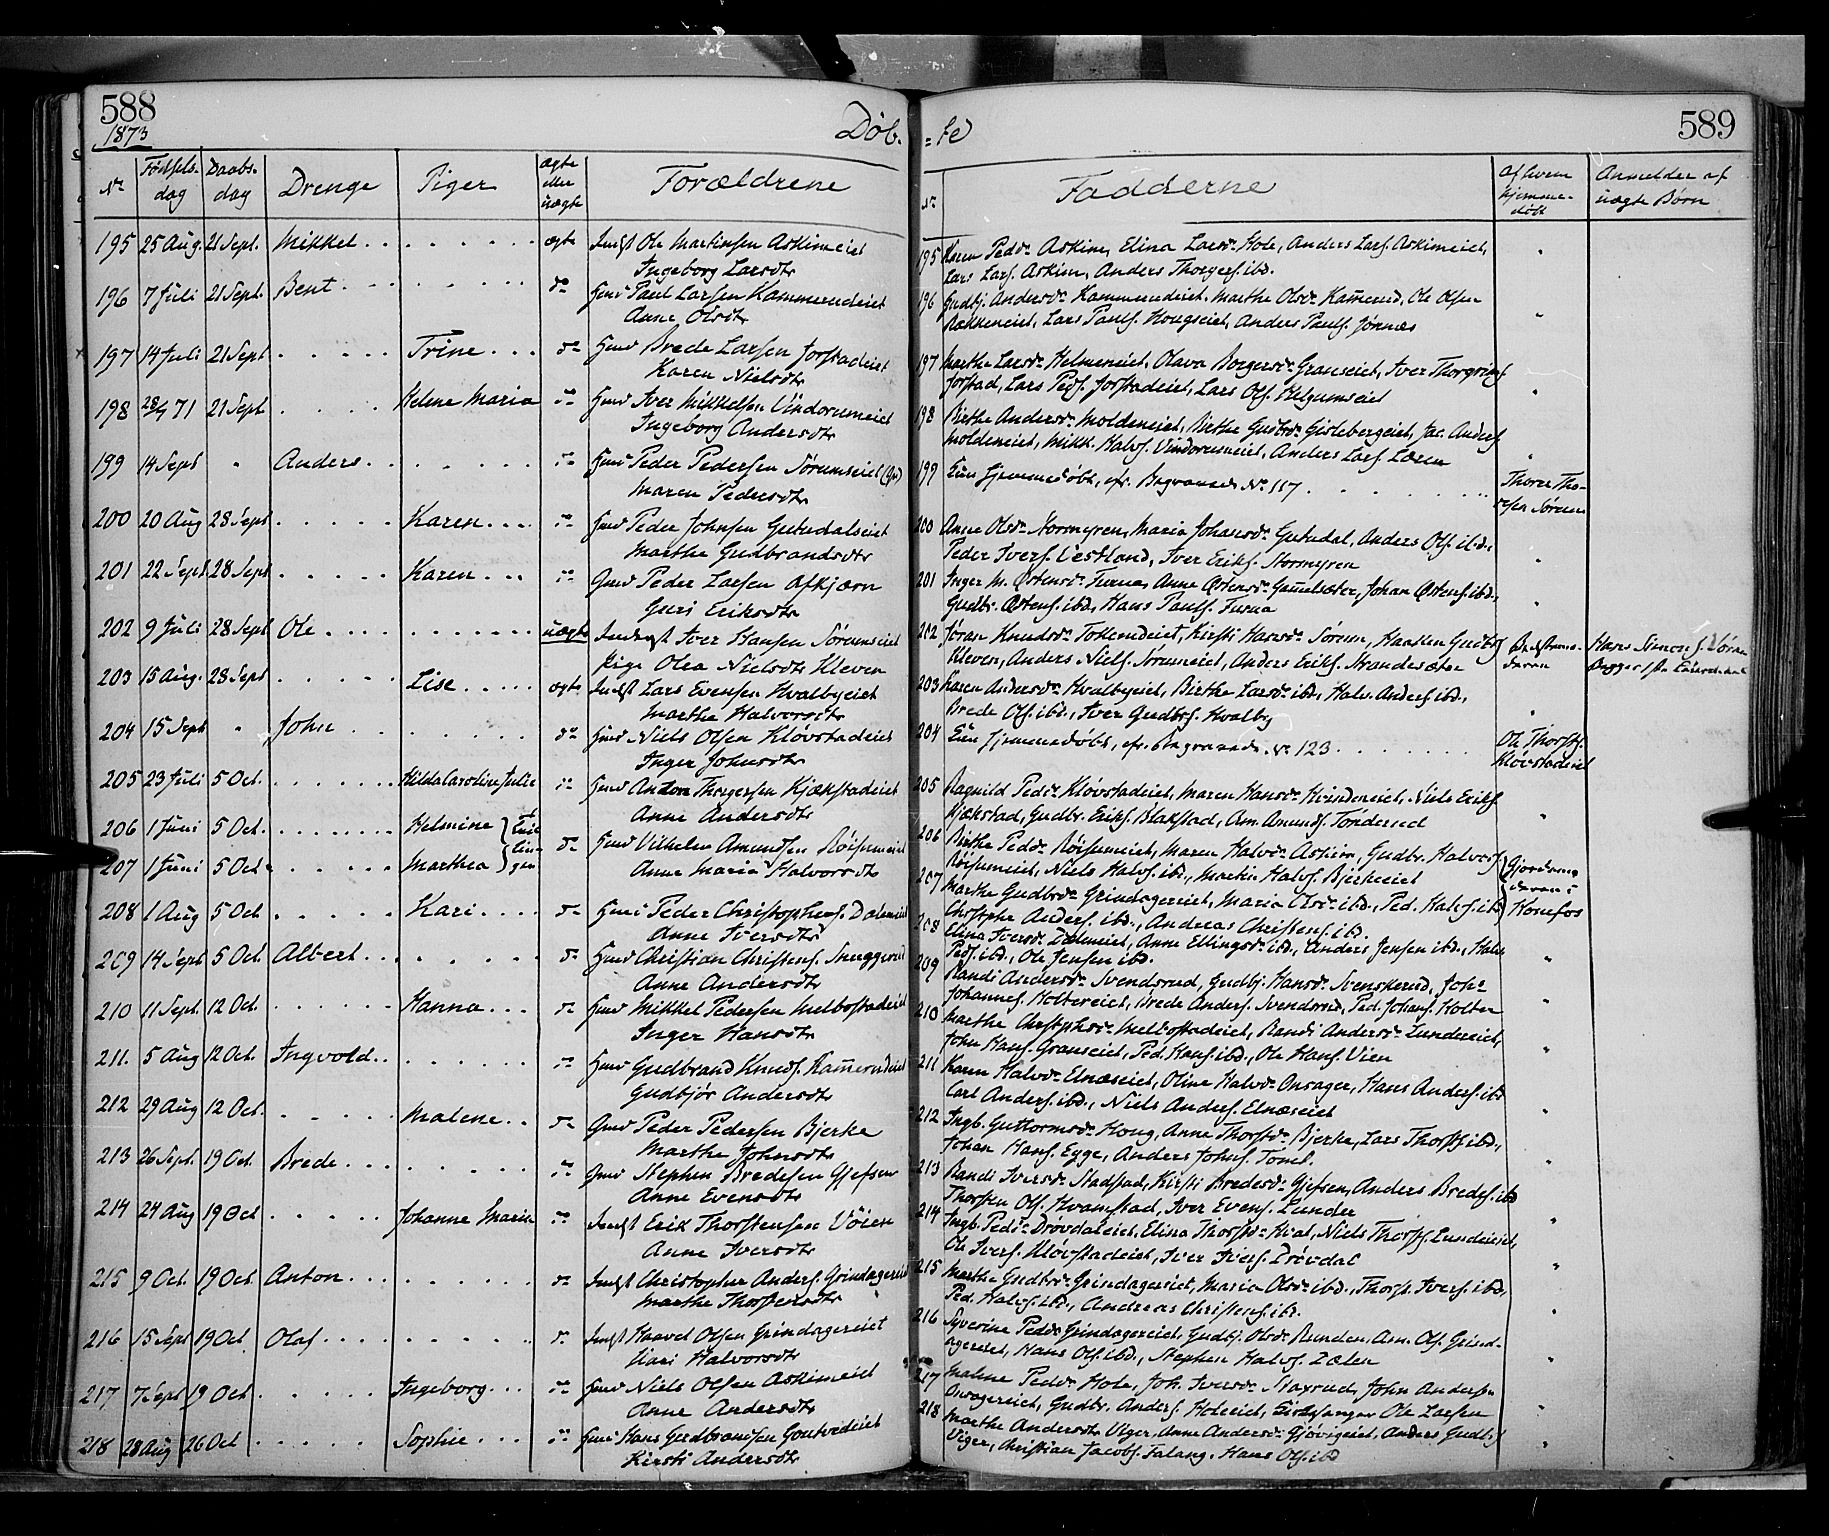 588
1873
Døb-
No Fødsels- dag Daabs- dag Drenge Piger ægte eller uægte Forældrene
195 25 Aug. 21 Sept. Mikkel ægte Indst Ole Martinsen Askimeiet
Ingeborg Larsdtr
196 7 Juli 21 Sept. Bent do Huusm Paul Larsen Kammerudeiet
Anne Olsdtr
197 14 Juli 21 Sept Trine do Huusm Brede Larsen Jorstadeiet
Karen Nielsdtr
198 28/4 71 21 Sept Helene Maria do Huusm Iver Mikkelsen Vindorumeiet
Ingeborg Andersdtr
199 14 Sept " Anders do Huusm Peder Pedersen Sørumseiet
Maren Pedersdtr
200 20 Aug 28 Sept Karen do Huusm Peder Johnsen Gutudalseiet
Marthe Gudbrandsdtr
201 22 Sept 28 Sept Karen do Gmd Peder Larsen Afkjærn
Guri Eriksdtr
202 9 Juli 28 Sept Ole uægte Iver Hansen Sørumseiet
Pige Olea Nielsdtr Kleven
203 15 Aug. 28 Sept Lise ægte Indst Lars Evensen Hvalbyeiet
Marthe Halvorsdtr
204 15 Sept " John do Huusm Niels Olsen Kløvstadeiet
Inger Johnsdtr
205 23 Juli 5 Oct. Hilda Caroline Julie do Huusm Anton Thorgersen Kjækstadeiet
Anne Andersdtr
206 1 Juni 5 Oct. Helmine do Huusm Vilhelm Amundsen Røisumeiet
207 1 Juni 5 Oct. Marthea Anne Maria Halvorsdtr
208 1 Aug 5 Oct. Kari do Huusm Peder Christophers. Dæleneiet
Anne Iversdtr
209 14 Sept 5 Oct. Albert do Huusm Christian Christens. Snuggerud
Anne Andersdtr
210 11 Sept. 12 Oct. Hanna do Huusm Mikkel Pedersen Melbostadeiet
Inger Hansdtr
211. 5 Aug 12 Oct. Ingvold do Huusm Gudbrand Knuds. Kamerudeiet
Gudbjør Andersdtr
212 29 Aug 12 Oct. Malene do Gmd Peder Pedersen Bjerke
Marthe Johnsdtr
213 26 Sept. 19 Oct. Brede do Gmd Stephen Bredesen Gjefsen
Anne Evensdtr
214 24 Aug 19 Oct. Johanne Maria do Indst Erik Thorstensen Vøien
Anne Iversdtr
215 9 Oct. 19 Oct Anton do Indst Christopher Anders. Grindagereiet
Marthe Thorstensdtr
216 15 Sept 19 Oct Olaf do Indst Haavel Olsen Grindagereiet
Kari Halvorsdtr
217 7 Sept 19 Oct. Ingeborg do Huusm Niels Olsen Askimeiet
Anne Andersdtr
218 28 Aug 26 Oct Sophie do Huusm Hans Gudbrandsen
Kirsti Andersdtr
-te
589
No Fadderne af hvem hjemme- døbt Anmelder af uægte Børn
195 Karen Pedsdr. Askim, Elina Larsdr. Hole, Anders Lars. Askimeiet,
Lars Lars. Askim, Anders Thorgers. ibd.
196 Gudbj. Andersdr. Kammerudeiet, Marthe Olsdr. Kamerud, Ole Olsen
Rækkeneiet, Lars Pauls. Hougseiet, Anders Pauls. Jørnæs
197 Marthe Larsdr. Helmeneiet, Olava Borgersdr. Granseiet, Iver
Jorstad, Lars Peds. Jorstadeiet, Lars Ols. Helgumseiet
198 Birthe Andersdr. Moldeneiet, Birthe Gudbrdr. Gislebergeiet, Jac. Anders.
Moldeneiet, Mikk. Halvs. Vindorumeiet, Anders Lars. Læen
199 Kun hjemmedøbt, cfr. Begravede No 117 Thorer Tho-
resen Sørum
200 Anne Olsdr. Stormyren, Maria Johansdr. Gutudal, Anders Ols. ibd.,
Peder Ivers. Vestland, Iver Eriks. Stormyren
201 Inger M. Østensdr. Furua, Anne Østensdr. Gamelsæter, Johan Østens. ibd.,
Gudbr. Østens. ibd., Hans Pauls. Furua
202 Jøran Knudsdr. Tokerudeiet, Kirsti Hansdr. Sørum, Haaken Gudbrs.
Kleven, Anders Niels. Sørumeiet, Anders Eriks. Strandesæter
203 Karen Andersdr. Hvalbyeiet, Birthe Larsdr. ibd., Halv. Anders. ibd.,
Brede Ols. ibd., Iver Gudbrs. Hvalby
204 Kun hjemmedøbt, cfr. Begravede No 123 Ole Thorsts.
Kløvstadeiet
205 Ragnild Pedsdr. Kløvstadeiet, Maren Hansdr. Niels Eriks.
Kjækstad, Gudbr. Eriks. Blakstad, Am. Amunds. Tønderud
206 Birthe Pedsdr. Røisumeiet, Maren Halvsdr. Askim, Gudbr. Halvors.
Røisumeiet, Niels Halvs. ibd., Martin Halvs. Bjerkeiet Gjordemo-
deren i
207 Marthe Gudbrdr. Grindagereiet, Maria Olsdr. ibd., Ped. Halvs. ibd. Honefos
Christophe Anders. ibd., Andreas Christens. ibd.
208 Elina Iversdr. Dæleneiet, Anne Ellingsdr. ibd., Anders Jensen ibd., Hans
Peds. ibd., Ole Jensen ibd.
209 Randi Andersdr. Svendsrud, Gudbj. Hansdr. Svenskerud, Johs.
Johannes. Holtereiet, Brede Anders. Svendsrud, Ped. Johans. Holter
210 Marthe Christophsdr. Melbostadeiet, Randi Andersdr. Lundereiet,
John Hans. Granseiet, Ped. Hans. ibd., Ole Hans. Vien
211 Karen Halvsdr. Elnæseiet, Oline Halvsdr. Onsager, Hans Anders. ibd.
Carl Anders. ibd., Niels Anders. Elnæseiet
212 Ingb. Guttormsdr. Houg, Anne Thorstsdr. Bjerke, Lars Thorsts. ibd.,
Johan Hans. Egge, Anders Johns. Tomt.
213 Randi Iversdr. Stadstad, Kirsti Bredesdr. Gjefsen, Anders Bredes. ibd
Thorsten Ols. Hvamstad, Iver Evens. Lunder
214 Ingb. Pedsdr. Drøvdaleiet, Elina Thorstsdr. Hval, Niels Thorsts. Lundeeiet,
Ole Ivers. Kløvstadeiet, Iver Ivers. Drøvdal
215 Marthe Gudbrdr. Grindagereiet, Maria Olsdr. ibd., Thorst. Ivers. ibd.,
Ped. Halvs. ibd., Andreas Christens. ibd.
216 Syverine Pedsdr. Grindagereiet, Gudbj. Olsdr. Runden, Am. Ols. Grind-
agereiet, Hans Ols. ibd., Stephen Halvs. Dælen
217 Maline Pedsdr. Hole, Joh. Iversdr. Staxrud, John Anders.
Onsagereiet, Gudbr. Anders. Holeeiet, Kirkesanger Ole Larsen
218 Marthe Andersdr. Viger, Anne Andersdr. Gjøvigeiet, Anders Gudbrs.
Viger, Christian Jacobs. Falang, Hans Ols. ibd